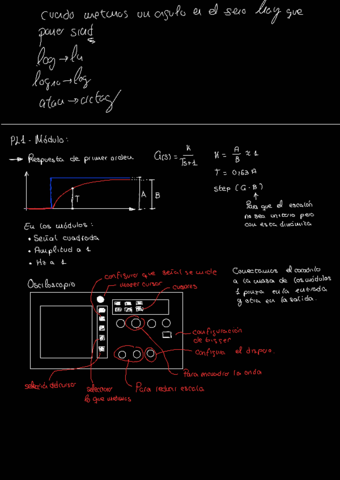 cuando metemos un angulo en el seno hay que
poner sind
log → ln
log10 → log
atan → arctag
P21 - Módulo:
→ Respuesta de primer orden
G(s) = K / Ts+1
K = A / B ≈ 1
T = 0,63 A
step (G·B)
Para que el escalón
no sea unitario pero
con esta
T
A
B
En los módulos:
• Señal cuadrada
• Amplitud a 1
• Hz a 1
Conectamos el
a la masa de los módulos
1 punta en la entrada
y otra en la salida.
Osciloscopio
configurar que señal se mide
mover cursor
cursores
configuración
de trigger
configura el display
Para encuadrar la onda
Para reducir escala
seleccionar
lo que medimos